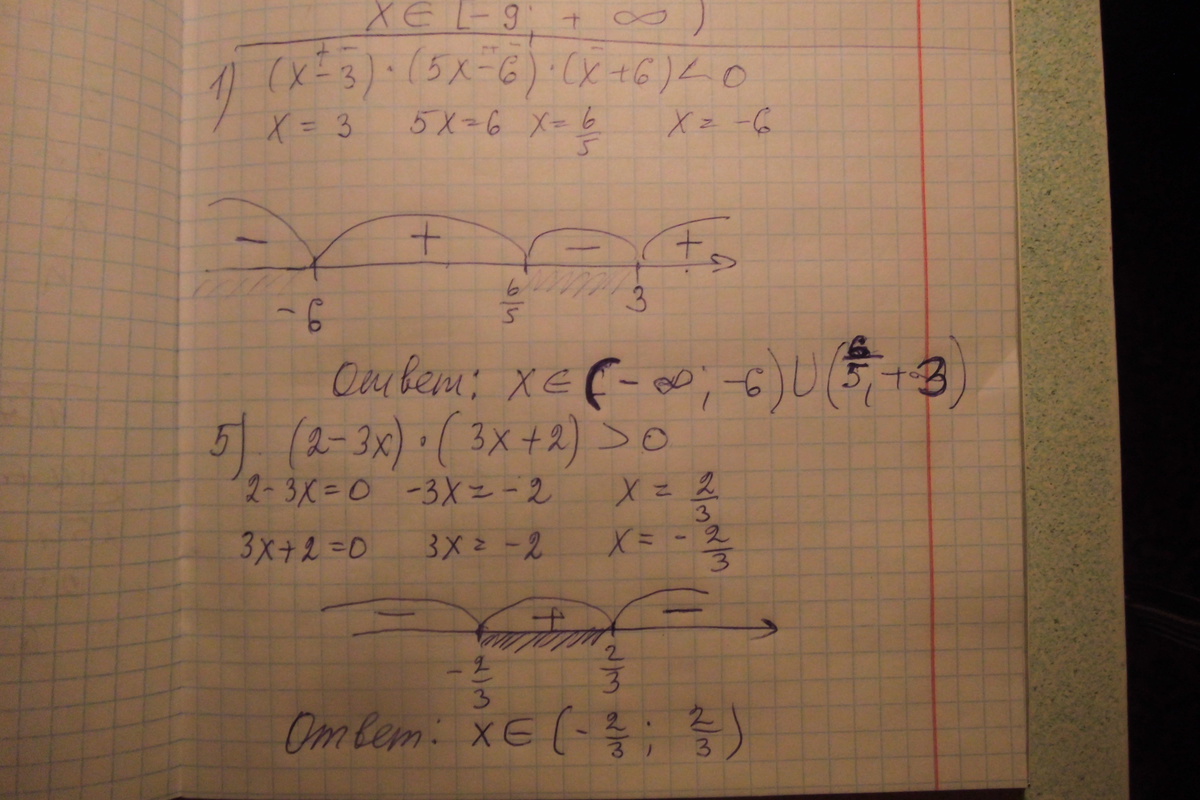 x ∈ [-9; + ∞)
1) (x-3)·(5x-6)·(x+6)<0
x = 3 5x=6 x=6/5 x = -6
- + - +
-6 6/5 3
Ответ: x ∈ (-∞; -6)∪(6/5; +3)
5). (2-3x)·(3x+2) > 0
2-3x=0 -3x = -2 x = 2/3
3x+2=0 3x = -2 x = -2/3
- + -
-2/3 2/3
Ответ: x ∈ (-2/3; 2/3)